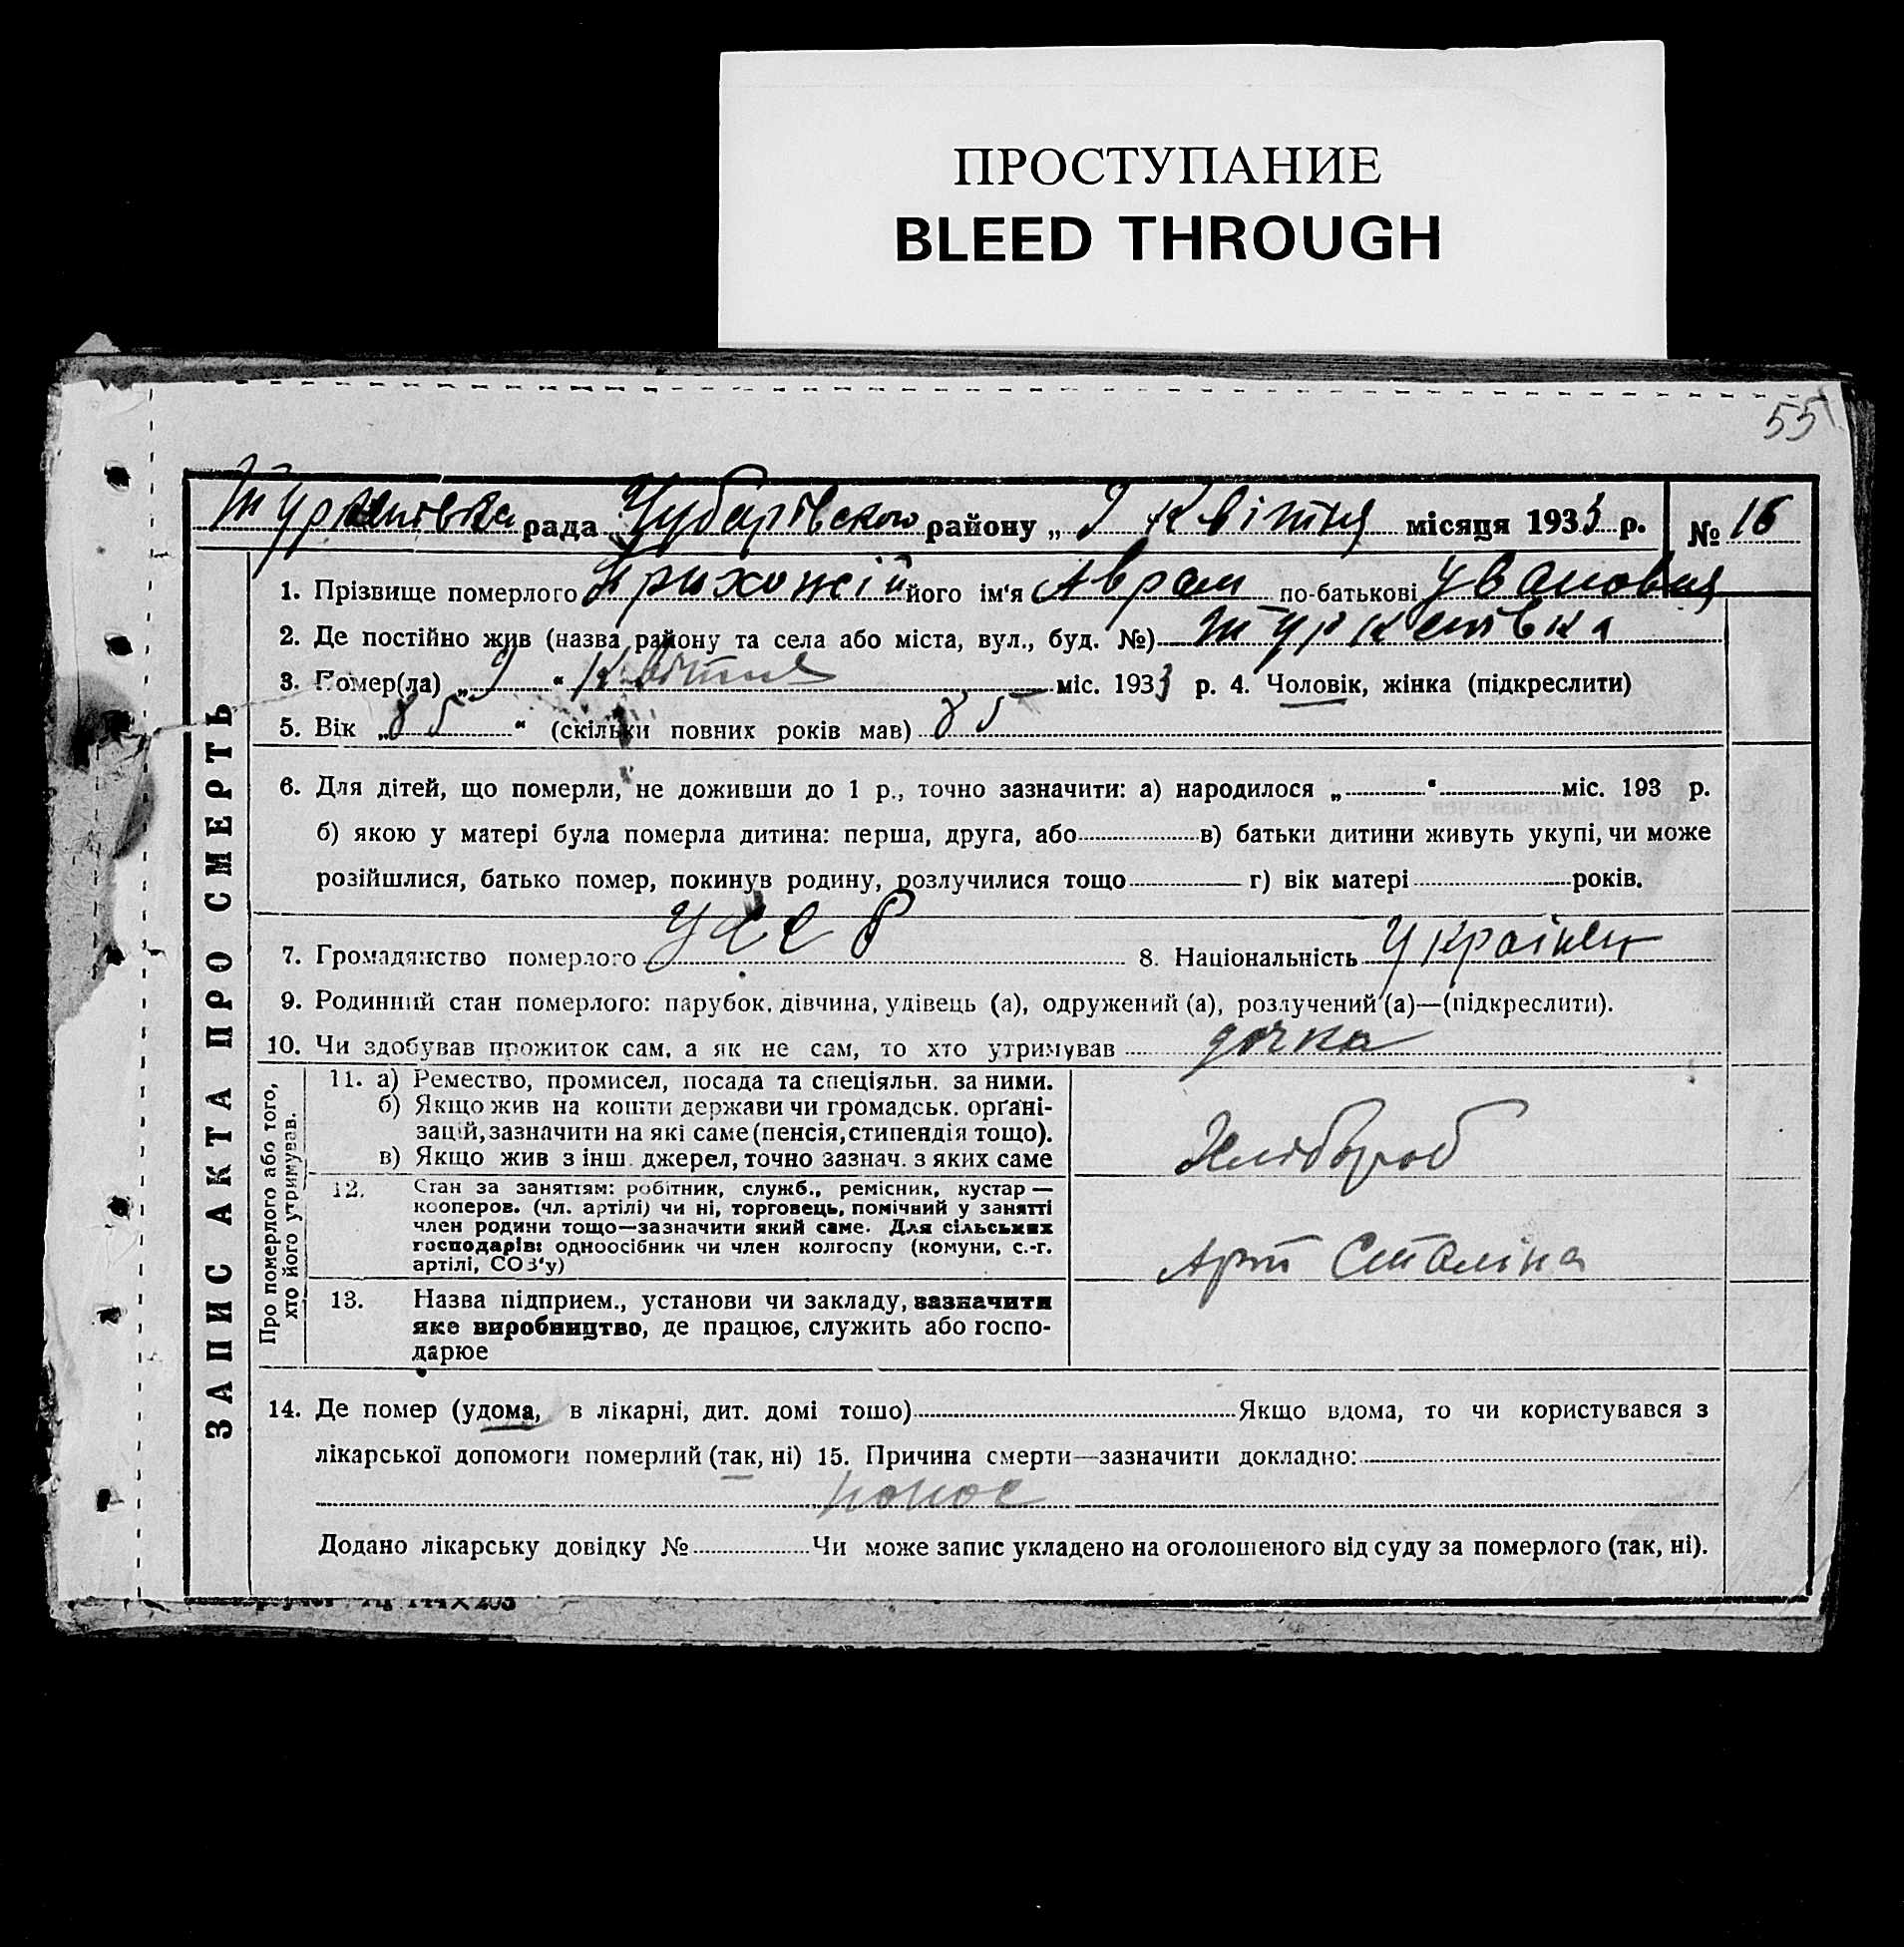 ПРОСТУПАНИЕ
BLEED THROUGH
55
Туркенівка рада Чубарівского району „ 9 Квітня місяця 1933 р. № 16
ЗАПИС АКТА ПРО СМЕРТЬ
1. Прізвище померлого Прихожій його ім'я Аврам по-батькові Увановия
2. Де постійно жив (назва району та села або міста, вул., буд. №) Туркенівка
3. Помер(ла) „ 9 “ Квітня міс. 1933 р. 4. Чоловік, жінка (підкреслити)
5. Вік „ 85 “ (скільки повних років мав) 85
6. Для дітей, що померли, не доживши до 1 р., точно зазначити: а) народилося „ “ міс. 193 р.
б) якою у матері була померла дитина: перша, друга, або в) батьки дитини живуть укупі, чи може
розійшлися, батько помер, покинув родину, розлучилися тощо г) вік матері років.
7. Громадянство померлого УССР 8. Національність Українец
9. Родинний стан померлого: парубок, дівчина, удівець (а), одружений (а), розлучений (а)—(підкреслити).
10. Чи здобував прожиток сам, а як не сам, то хто утримував дочка
Про померлого або того,
хто його утримував.
11. а) Ремество, промисел, посада та спеціяльн. за ними.
б) Якщо жив на кошти держави чи громадськ. орґані-
зацій, зазначити на які саме (пенсія, стипендія тощо).
в) Якщо жив з інш. джерел, точно зазнач. з яких саме
Хлібороб
12. Стан за заняттям: робітник, служб., ремісник, кустар —
кооперов. (чл. артілі) чи ні, торговець, помічний у занятті
член родини тощо—зазначити який саме. Для сільських
господарів: одноосібник чи член колгоспу (комуни, с.-г.
артілі, СОЗ'у)
Арт Сталіна
13. Назва підприєм., установи чи закладу, зазначити
яке виробництво, де працює, служить або госпо-
дарює
14. Де помер (удома, в лікарні, дит. домі тощо) Якщо вдома, то чи користувався з
лікарської допомоги померлий (так, ні) 15. Причина смерти—зазначити докладно:
понос
Додано лікарську довідку № Чи може запис укладено на оголошеного від суду за померлого (так, ні).